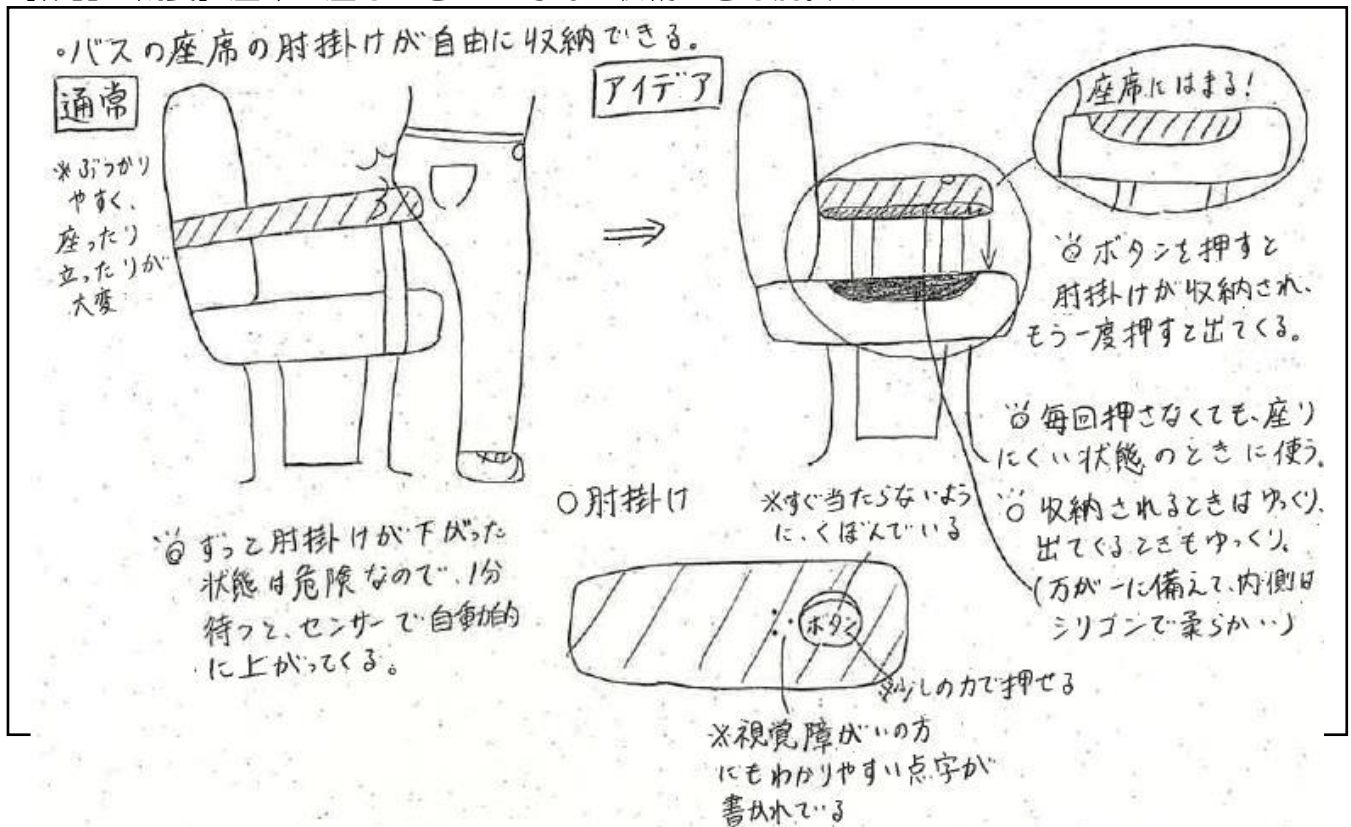 ・バスの座席の肘掛けが自由に収納できる。
通常
※ぶつかり
やすく、
座ったり
立ったりが
大変
アイデア
座席にはまる!
ボタンを押すと
肘掛けが収納され、
もう一度押すと出てくる。
毎回押さなくても、座り
にくい状態のときに使う。
収納されるときはゆっくり、
出てくるときもゆっくり。
(万が一に備えて、内側は
シリコンで柔らかい)
ずっと肘掛けが下がった
状態は危険なので、1分
待つと、センサーで自動的
に上がってくる。
○肘掛け
※すぐ当たらないよう
に、くぼんでいる
ボタン
※少しの力で押せる
※視覚障がいの方
にもわかりやすい点字が
書かれている